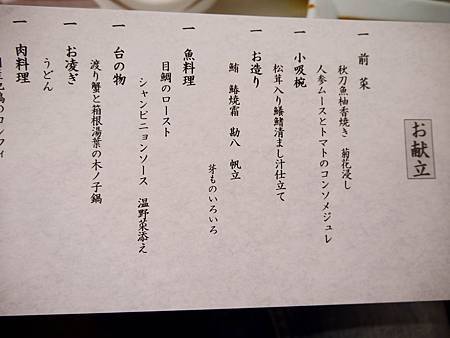 お献立
一 前菜
秋刀魚柚香焼き 菊花浸し
人参ムースとトマトのコンソメジュレ
一 小吸椀
松茸入り鱶鰭清まし汁仕立て
一 お造り
鮪 鰆焼霜 勘八 帆立
芽ものいろいろ
一 魚料理
目鯛のロースト
シャンピニョンソース 温野菜添え
一 台の物
渡り蟹と箱根湯葉の木ノ子鍋
一 お凌ぎ
うどん
一 肉料理
のコンフィ